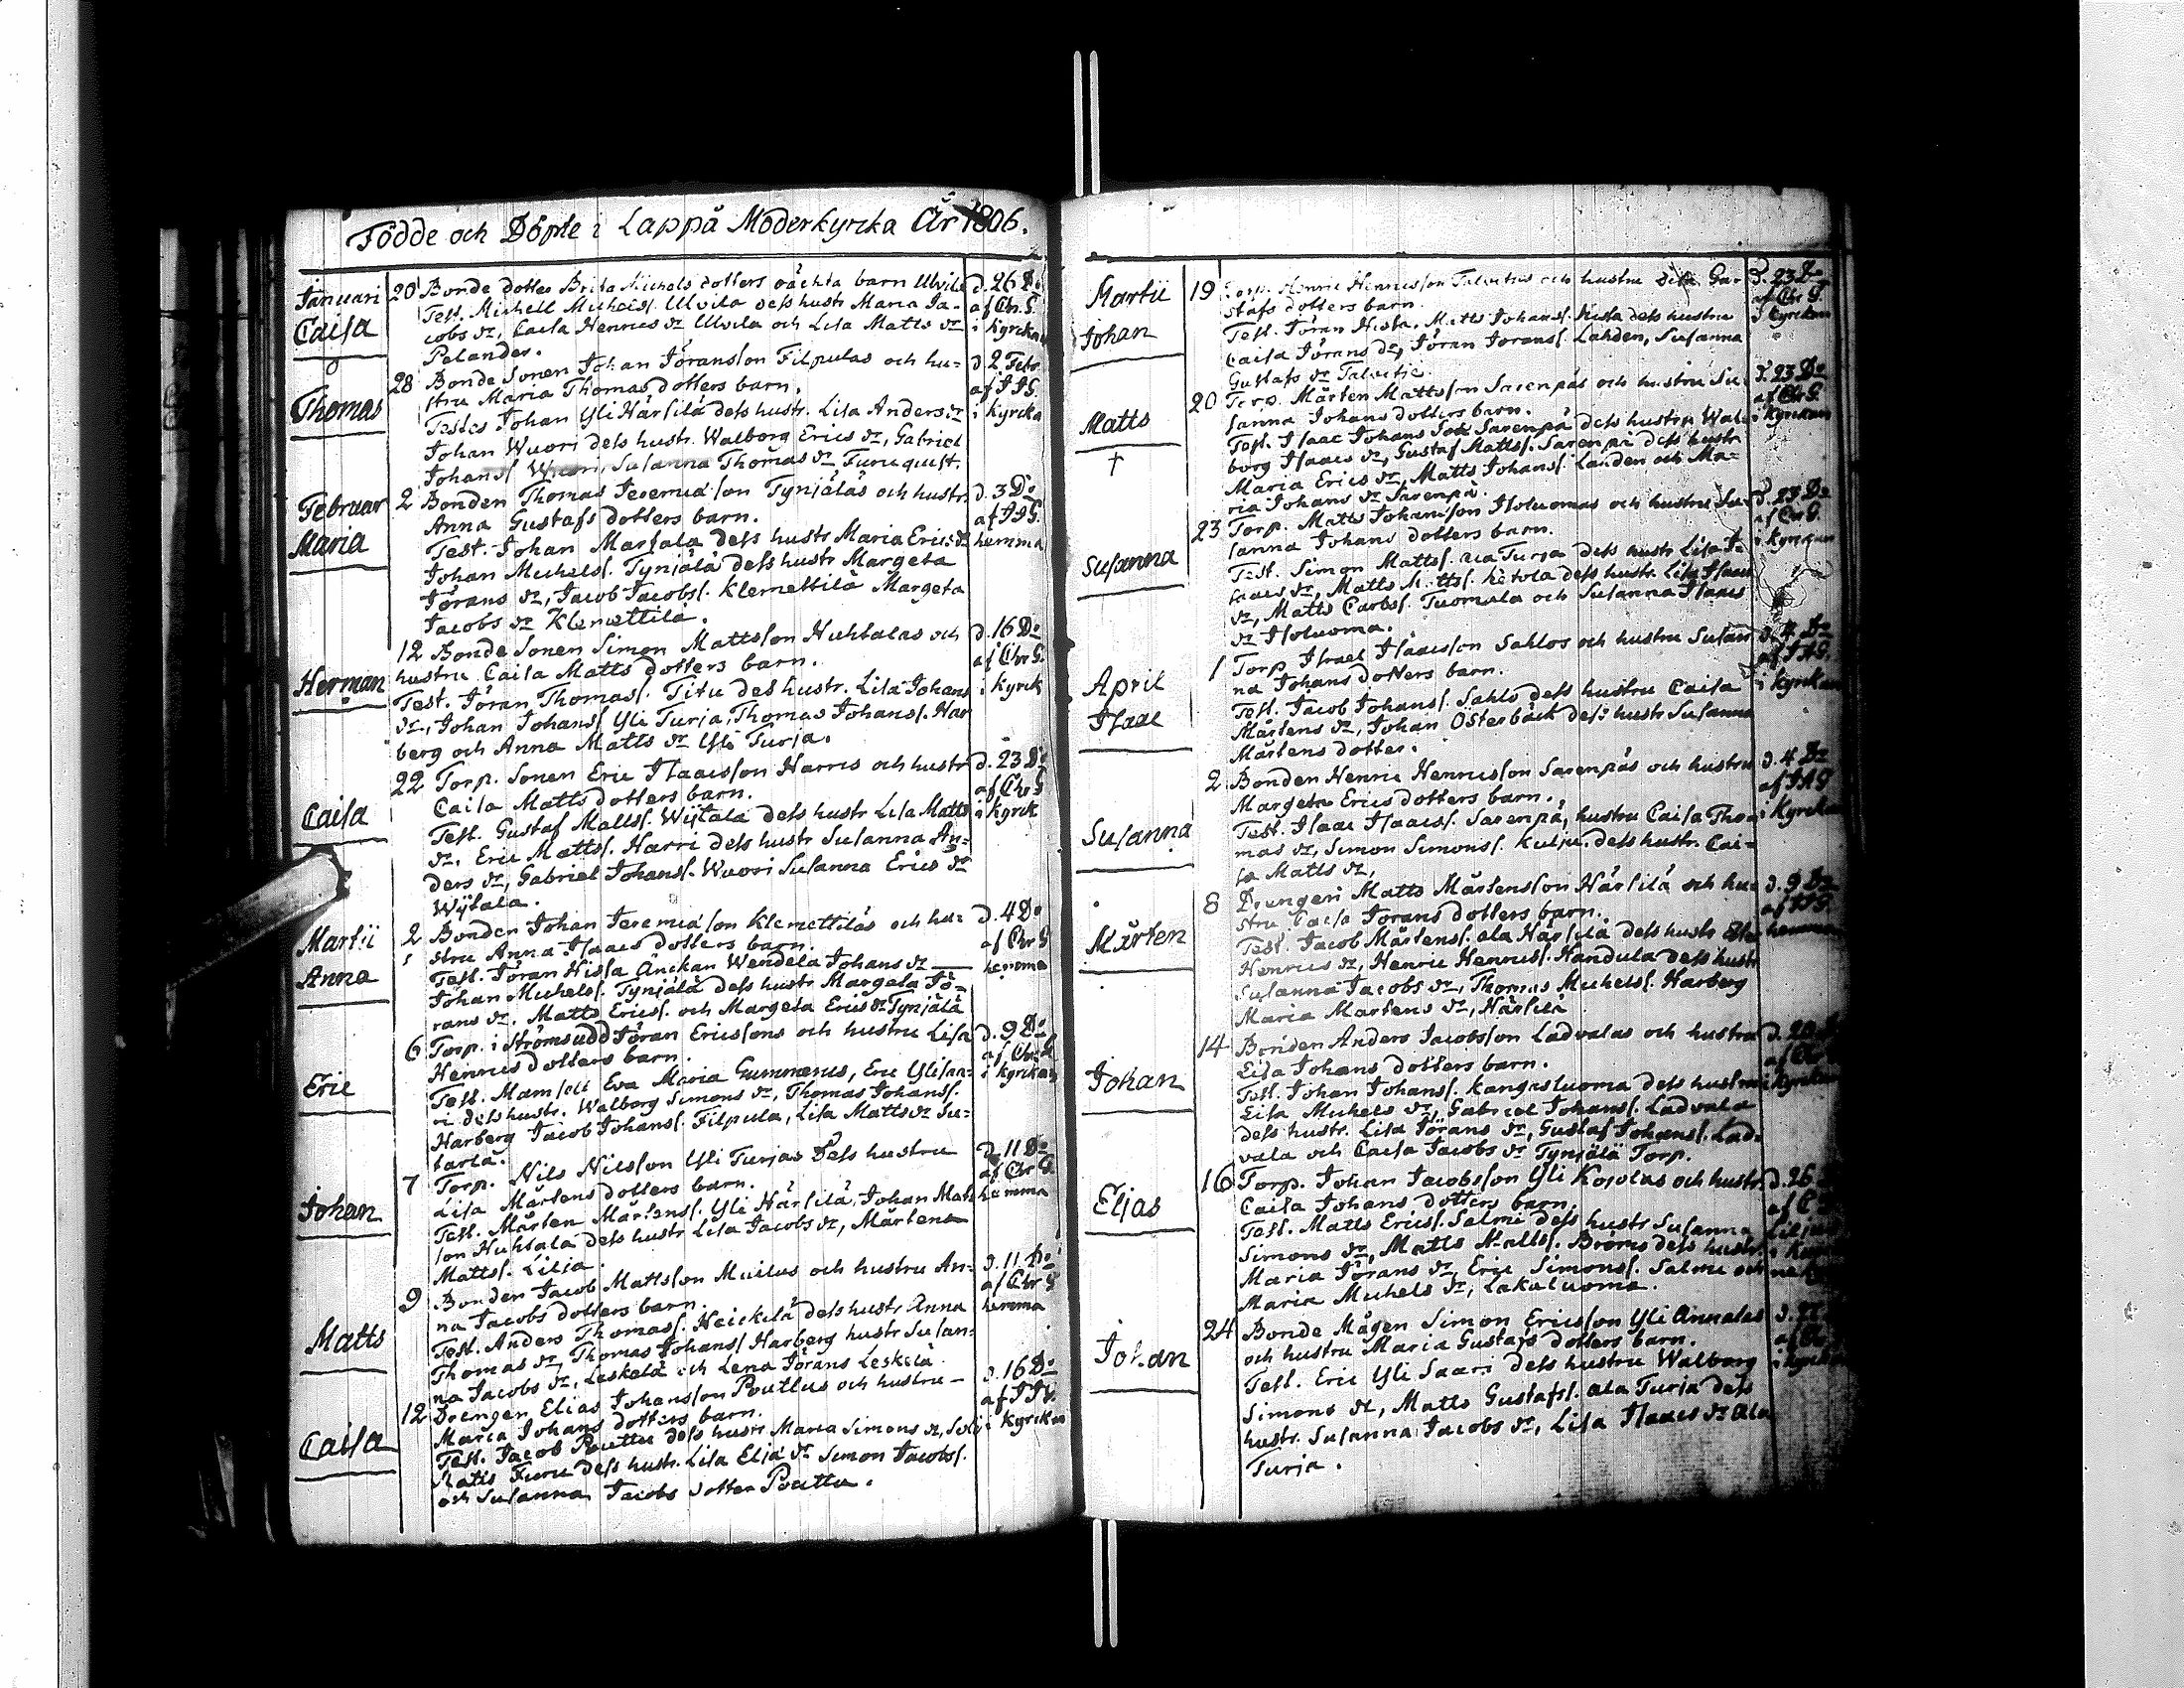 Födde och Döpte i Lappå Moderkyrka År 1806.
Januari 20 Bonde dotter Brita Michels dotters oächta barn Ulvila d. 26 Do
Test. Michell Michels/. Ulvila dess hustr Maria Ja- af Chr. G.
Caisa cobs dr, Caisa Henrics dr Ulvila och Lisa Matts dr i Kyrckan
Pelander.
28 Bonde Sonen Johan Jöransson Filpulas och hu= d. 2 Febr.
Thomas stru Maria Thomas dotters barn. af J J G.
Testes Johan Yli Härsilä dess hustr. Lisa Anders dr i Kyrcka
Johan Wuori dess hustr. Walborg Erics dr, Gabriel
Johans/ Wuori, Susanna Thomas dr Furuquist.
Februar 2 Bonden Thomas Jeremiasson Tynjäläs och hustr. d. 3 Do
Anna Gustafs dotters barn. af J J G.
Maria Test. Johan Marsala dess hustr Maria Erics dr hemma
Johan Michels/. Tynjälä dess hustr Margeta
Jörans dr, Jacob Jacobs/. Klemettilä Margeta
Jacobs dr Klemettilä.
12 Bonde Sonen Simon Mattsson Huhtalas och d. 16 Do
hustru Caisa Matts dotters barn. af Chr G.
Herman Test. Jöran Thomas/. Titu dess hustr. Lisa Johans i Kyrck
dr, Johan Johans/ Yli Turja, Thomas Johans/. Har
berg och Anna Matts dr Yli Turja.
22 Torp. Sonen Eric Isaacsson Harris och hustr d. 23 Do
Caisa Matts dotters barn. af Chr G
Caisa Test. Gustaf Matts/. Wijtala dess hustr Lisa Matts i Kyrck
dr. Eric Matts/. Harri dess hustr Susanna An=
ders dr, Gabriel Johans/. Wuori Susanna Erics dr
Wijtala.
Martii 2 Bonden Johan Jeremiasson Klemettiläs och hu= d. 4 Do
stru Anna Isaacs dotters barn. af Chr G
Anna Test. Jöran Hissa Änckan Wendela Johans dr hemma
Johan Michels/. Tynjälä dess hustr Margeta Jö-
rans dr. Matts Erics/. och Margeta Erics dr Tynjälä
6 Torp. i Strömsudd Jöran Ericssons och hustru Lisa d. 9 Do
Henrics dotters barn. af Chr G
Eric Test. Mamsell Eva Maria Gummerus, Eric Ylisaa- i Kyrckan
ri dess hustr. Walborg Simons dr, Thomas Johans/.
Harberg Jacob Johans/. Filpula, Lisa Matts dr Su=
tarla.
7 Torp. Nils Nilsson Yli Turjas Dess hustru d. 11 Do
Lisa Mårtens dotters barn. af Chr G.
Johan Test. Mårten Mårtens/. Yli Härsilä, Johan Mats hemma
son Huhtala dess hustr Lisa Jacobs dr, Mårtens
Matts/. Lilja.
9 Bonden Jacob Mattsson Mailus och hustru An= d. 11 Do
na Jacobs dotters barn. af Chr G
Matts Test. Anders Thomas/. Heickilä dess hustr Anna hemma
Thomas dr, Thomas Johans/ Harberg hustr Susan=
na Jacobs dr, Leskelä och Lena Jörans Leskelä.
12 Drengen Elias Johansson Pouttus och hustru – d. 16 Do
Maria Johans dotters barn. af J J G.
Caisa Test. Jacob Pouttu dess hustr Maria Simons dr, i Kyrckan
Matts Furu dess hustr. Lisa Eliæ dr Simon Jacobs/.
och Susanna Jacobs dotter Pouttu.
Martii 19 Torp. Henric Henricsson Talvitius och hustru Gu- d. 23 Do
stafs dotters barn. af Chr G.
Johan Test. Jöran Hissa, Matts Johans/. Hissa dess hustru i Kyrckan
Caisa Jörans dr, Jöran Jörans/. Lahden, Susanna
Gustafs dr Talvitie.
20 Torp. Mårten Mattsson Sarenpäs och hustru Su- d. 23 Do
sanna Johans dotters barn. af Chr G.
Matts Test. Isaac Johans Sarenpä dess hustru Wal- i Kyrckan
† borg Isaacs dr, Gustaf Matts/. Sarenpä dess hustr
Maria Erics dr, Matts Johans/. Lahden och Ma=
ria Johans dr Sarenpä.
23 Torp. Matts Johansson Isoluomas och hustru Su- d. 23 Do
sanna Johans dotters barn. af Chr G.
Susanna Test. Simon Matts/. ala Turja dess hustr Lisa I- i Kyrckan
saacs dr, Matts Matts/. Ketola dess hustr. Lisa Isaacs
dr, Matts Carls/. Tuomala och Susanna Isaacs
dr Isoluoma.
April 1 Torp. Israel Isaacsson Sahlos och hustru Susan d. 4 Do
na Johans dotters barn. af J A G.
Isaac Test. Jacob Johans/. Sahlo dess hustru Caisa i Kyrckan
Mårtens dr, Johan Österbäck dess hustr Susanna
Mårtens dotter.
2 Bonden Henric Henricsson Sarenpäs och hustru d. 4 Do
Margeta Erics dotters barn. af J A G
Susanna Test. Isaac Isaacs/. Sarenpä, hustru Caisa Tho- i Kyrckan
mas dr, Simon Simons/. Kulju dess hustr. Cai-
sa Matts dr,
8 Drengen Matts Mårtensson Härsilä och hu- d. 9 Do
stru Caisa Jörans dotters barn. af J J G.
Mårten Test. Jacob Mårtens/. ala Härsilä dess hustr hemma
Henrics dr, Henric Henrics/. Handula dess hustr
Susanna Jacobs dr, Thomas Michels/. Harberg
Maria Mårtens dr, Härsilä
14 Bonden Anders Jacobsson Ladvalas och hustru d. 20
Lisa Johans dotters barn. af Chr
Johan Test. Johan Johans/. Kangasluoma dess hustru i Kyrckan
Lisa Michels dr, Gabriel Johans/. Ladvala
dess hustr. Lisa Jörans dr, Gustaf Johans/. Lad=
vala och Caisa Jacobs dr Tynjälä Torp.
16 Torp. Johan Jacobsson Yli Kojolas och hustr. d. 26
Caisa Johans dotters barn. af C
Elias Test. Matts Erics/. Salmi dess hustr Susanna
Simons dr, Matts Matts/. Broms dess hustr
Maria Jörans dr, Eric Simons/. Salmi och
Maria Michels dr, Lakaluoma.
24 Bonde Mågen Simon Ericsson Yli Annalas
och hustru Maria Gustafs dotters barn.
Johan Test. Eric Yli Saari dess hustru Walborg i Kyrckan
Simons dr, Matts Gustafs/. ala Turja dess
hustr. Susanna Jacobs dr, Lisa Isaacs dr ala
Turja.